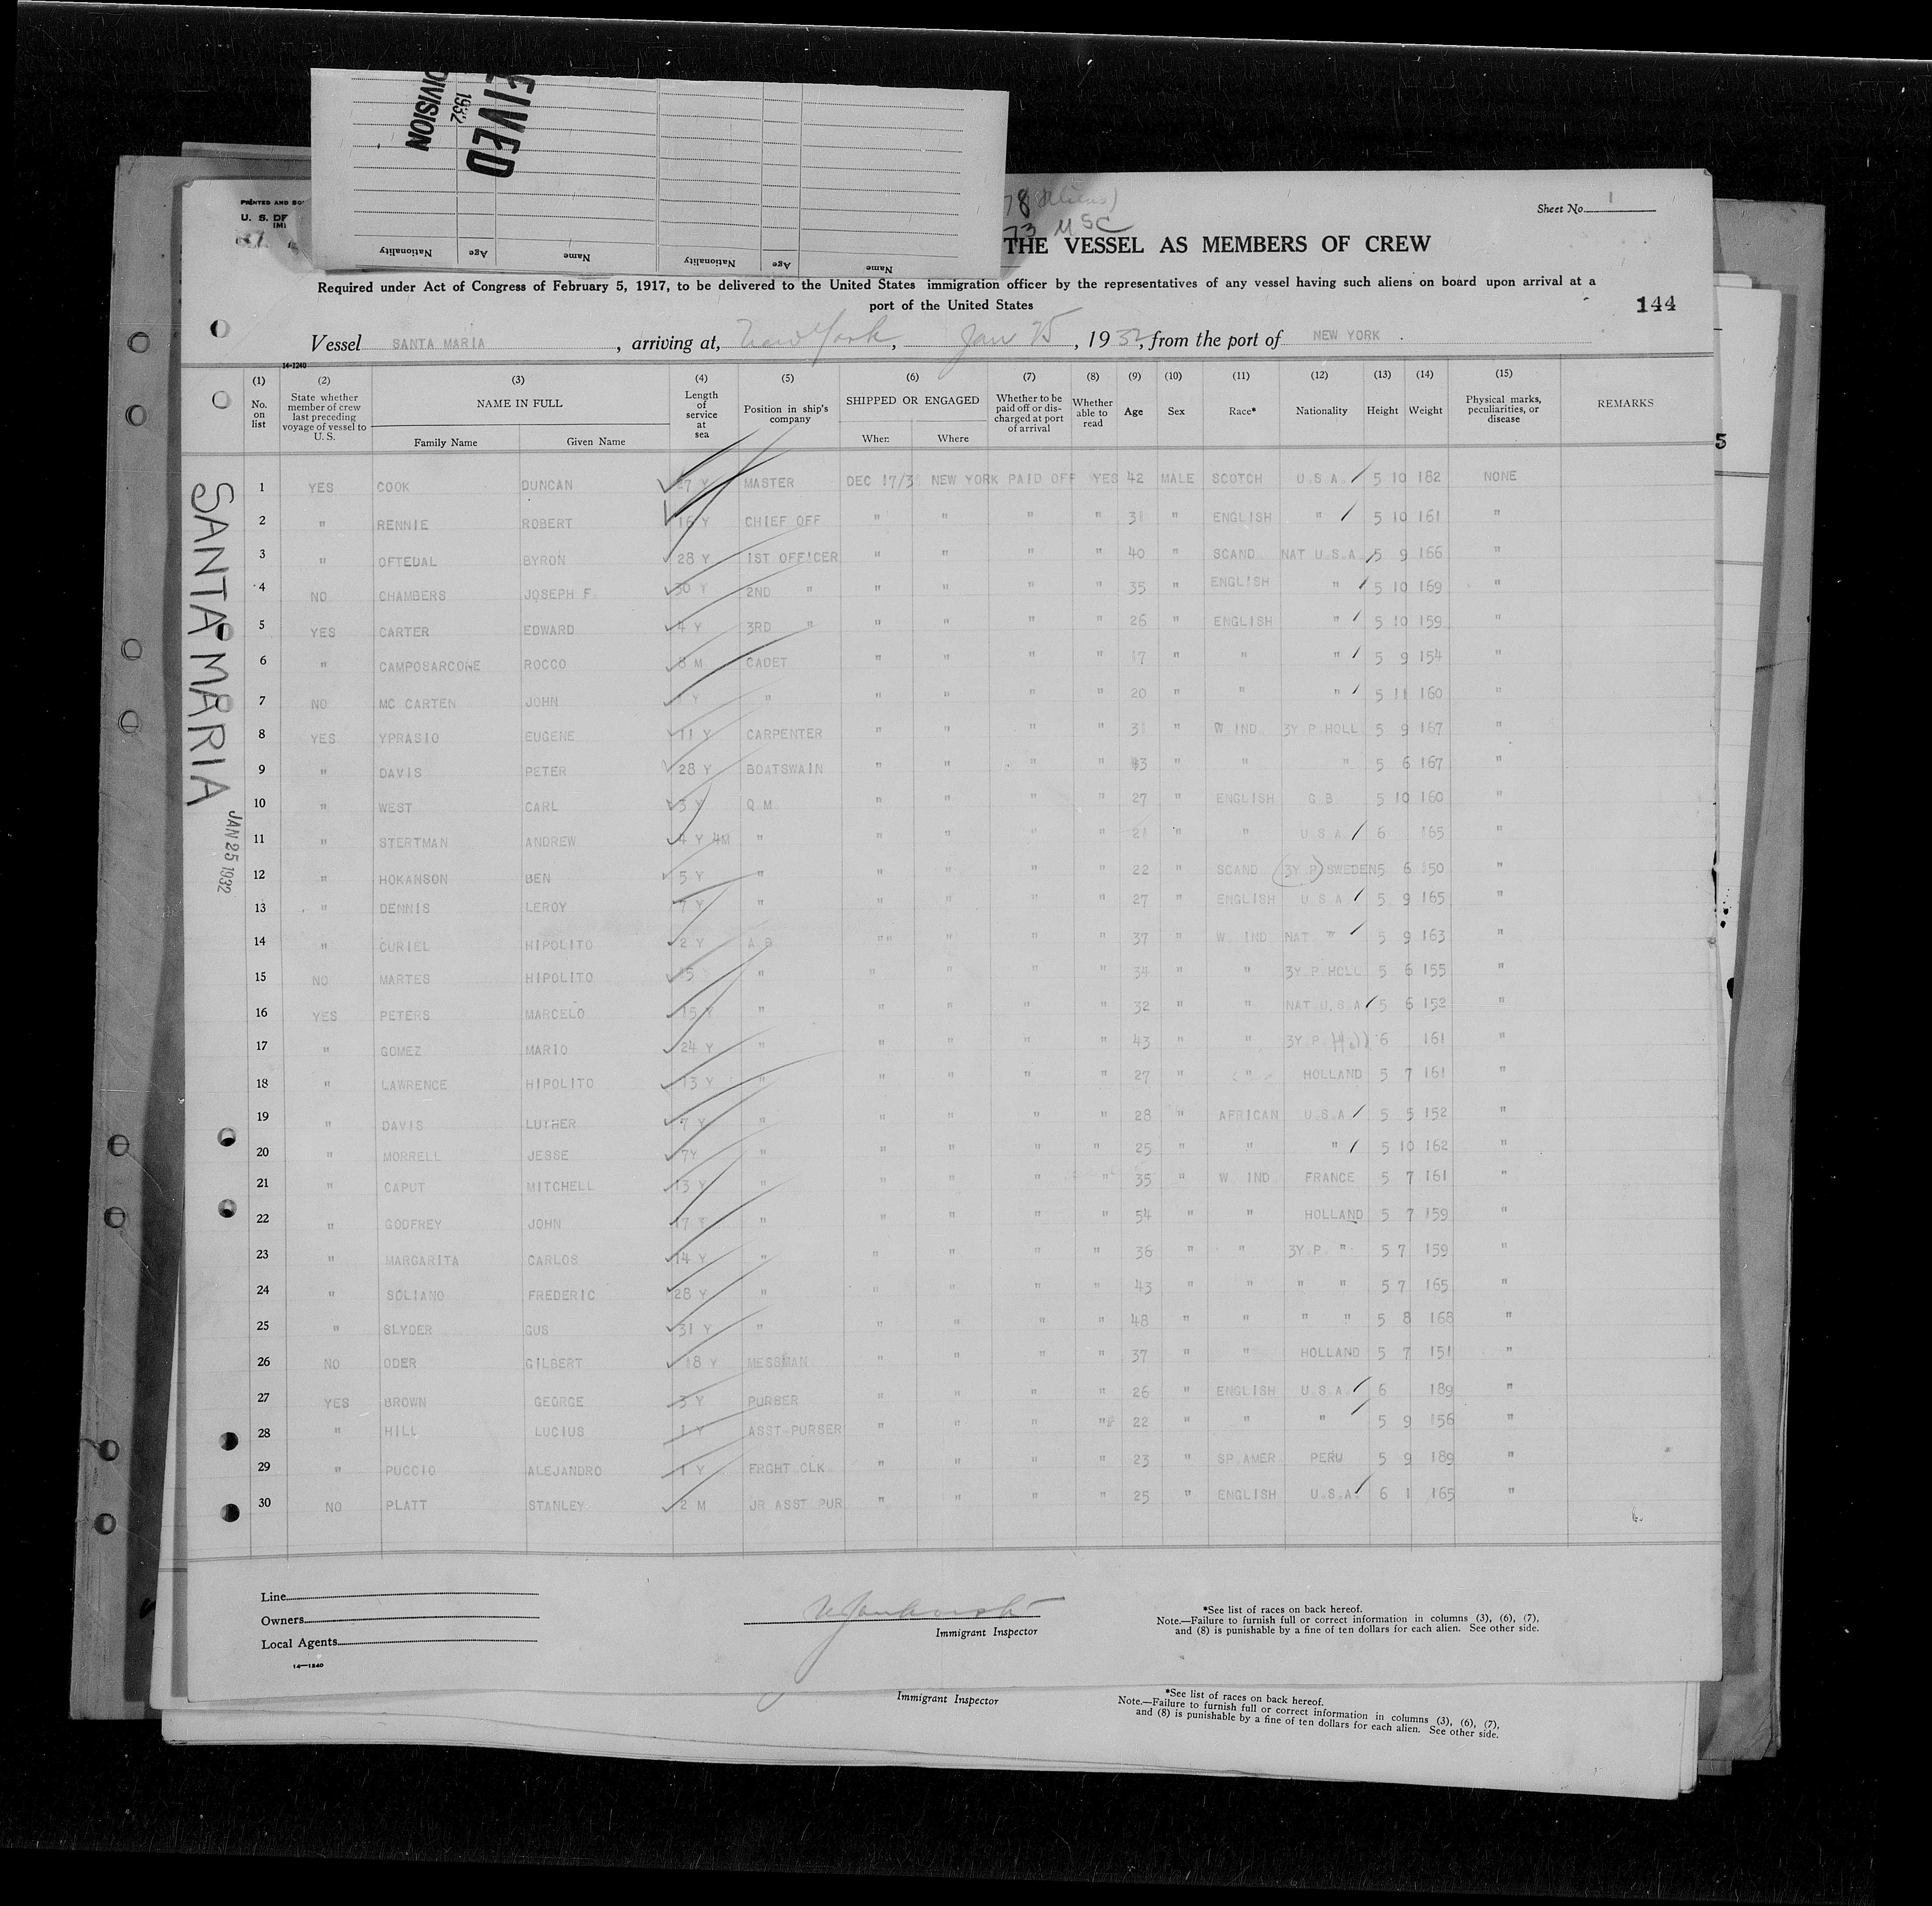 EIVED
1932
DIVISION
Name Age Nationality Name Age Nationality
PRINTED AND SO
U. S. DE
IMI
78 Aliens)
73 USC
Sheet No. 1
THE VESSEL AS MEMBERS OF CREW
Required under Act of Congress of February 5, 1917, to be delivered to the United States immigration officer by the representatives of any vessel having such aliens on board upon arrival at a
port of the United States
144
Vessel SANTA MARIA, arriving at, New York, Jan 25, 1932, from the port of NEW YORK.
14-1240
(1) (2) (3) (4) (5) (6) (7) (8) (9) (10) (11) (12) (13) (14) (15)
No. on list
State whether member of crew last preceding voyage of vessel to U.S.
NAME IN FULL
Family Name Given Name
Length of service at sea
Position in ship's company
SHIPPED OR ENGAGED
When Where
Whether to be paid off or discharged at port of arrival
Whether able to read
Age Sex Race* Nationality Height Weight
Physical marks, peculiarities, or disease
REMARKS
5
SANTA MARIA
JAN 25 1932
1 YES COOK DUNCAN 27 Y MASTER DEC 17/3 NEW YORK PAID OFF YES 42 MALE SCOTCH U.S.A. 5 10 182 NONE
2 " RENNIE ROBERT 16 Y CHIEF OFF " " " " 31 " ENGLISH " 5 10 161 "
3 " OFTEDAL BYRON 28 Y 1ST OFFICER " " " " 40 " SCAND. NAT U.S.A. 5 9 166 "
4 NO CHAMBERS JOSEPH F. 30 Y 2ND " " " " " 35 " ENGLISH " 5 10 169 "
5 YES CARTER EDWARD 4 Y 3RD " " " " " 26 " ENGLISH " 5 10 159 "
6 " CAMPOSARCONE ROCCO 8 M CADET " " " " 17 " " " 5 9 154 "
7 NO MC CARTEN JOHN 1 Y " " " " " 20 " " " 5 11 160 "
8 YES YPRASIO EUGENE 11 Y CARPENTER " " " " 31 " W. IND. 3Y.P.HOLL 5 9 167 "
9 " DAVIS PETER 28 Y BOATSWAIN " " " " 43 " " " 5 6 167 "
10 " WEST CARL 5 Y Q.M. " " " " 27 " ENGLISH G.B. 5 10 160 "
11 " STERTMAN ANDREW 4 Y 4M " " " " " 21 " " U.S.A. 6 165 "
12 " HOKANSON BEN 5 Y " " " " " 22 " SCAND 3Y.P. SWEDEN 5 6 150 "
13 " DENNIS LEROY 7 Y " " " " " 27 " ENGLISH U.S.A. 5 9 165 "
14 " CURIEL HIPOLITO 2 Y A.B. "" " " " 37 " W. IND. NAT. " 5 9 163 "
15 NO MARTES HIPOLITO 15 " " " " " 34 " " 3Y.P.HOLL 5 6 155 "
16 YES PETERS MARCELO 15 Y " " " " " 32 " " NAT U.S.A. 5 6 152 "
17 " GOMEZ MARIO 24 Y " " " " " 43 " " 3Y.P. Holl 6 161 "
18 " LAWRENCE HIPOLITO 13 Y " " " " " 27 " " HOLLAND 5 7 161 "
19 " DAVIS LUTHER 7 Y " " " " " 28 " AFRICAN U.S.A. 5 5 152 "
20 " MORRELL JESSE 7Y " " " " " 25 " " " 5 10 162 "
21 " CAPUT MITCHELL 13 Y " " " " " 35 " W. IND. FRANCE 5 7 161 "
22 " GODFREY JOHN 17 Y " " " " " 54 " " HOLLAND 5 7 159 "
23 " MARGARITA CARLOS 14 Y " " " " " 36 " " 3Y.P. " 5 7 159 "
24 " SOLIANO FREDERIC 28 Y " " " " " 43 " " " " 5 7 165 "
25 " SLYDER GUS 31 Y " " " " " 48 " " " " 5 8 168 "
26 NO ODER GILBERT 18 Y MESSMAN " " " " 37 " " HOLLAND 5 7 151 "
27 YES BROWN GEORGE 3 Y PURSER " " " " 26 " ENGLISH U.S.A. 6 189 "
28 " HILL LUCIUS 1 Y ASST-PURSER " " " " 22 " " " 5 9 156 "
29 " PUCCIO ALEJANDRO 1 Y FRGHT CLK " " " " 23 " SP.AMER PERU 5 9 189 "
30 NO PLATT STANLEY 2 M JR ASST PUR " " " " 25 " ENGLISH U.S.A. 6 1 165 "
Line
Owners
Local Agents
14—1240
Immigrant Inspector
*See list of races on back hereof.
Note.—Failure to furnish full or correct information in columns (3), (6), (7),
and (8) is punishable by a fine of ten dollars for each alien. See other side.
Immigrant Inspector
*See list of races on back hereof.
Note.—Failure to furnish full or correct information in columns (3), (6), (7),
and (8) is punishable by a fine of ten dollars for each alien. See other side.